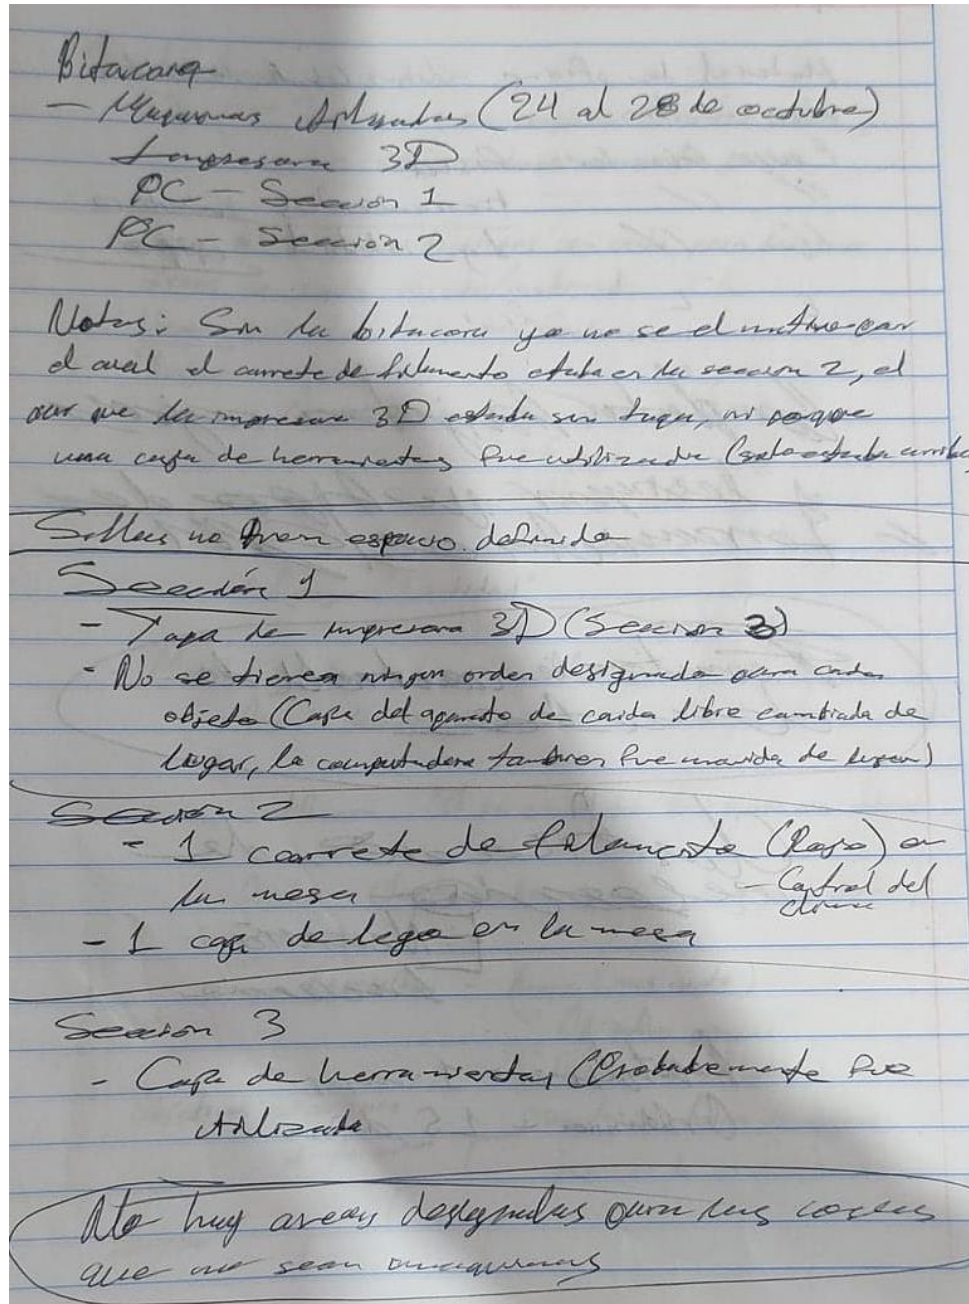 Bitacora
- Maquinas utilizadas (24 al 28 de octubre)
Impresora 3D
PC - Sección 1
PC - Sección 2
Notas: Sin la bitacora yo no se el motivo por
el cual el carrete de filamento estaba en la sección 2, el
por que la impresora 3D estaba sin tapa, ni porque
una caja de herramientas fue utilizada (solo estaba arriba)
Sillas no tienen espacio definido
Sección 1
- Tapa de impresora 3D (Seccion 3)
- No se tienen ningun orden designado para cada
objeto (Caja del aparato de caida libre cambiada de
lugar, la computadora tambien fue movida de lugar)
Sección 2
- 1 carrete de filamento (Rojo) en
la mesa
- Control del
clima
- 1 caja de lego en la mesa
Sección 3
- Caja de herramientas (Probablemente fue
utilizada
No hay areas designadas para las cosas
que no sean maquinas